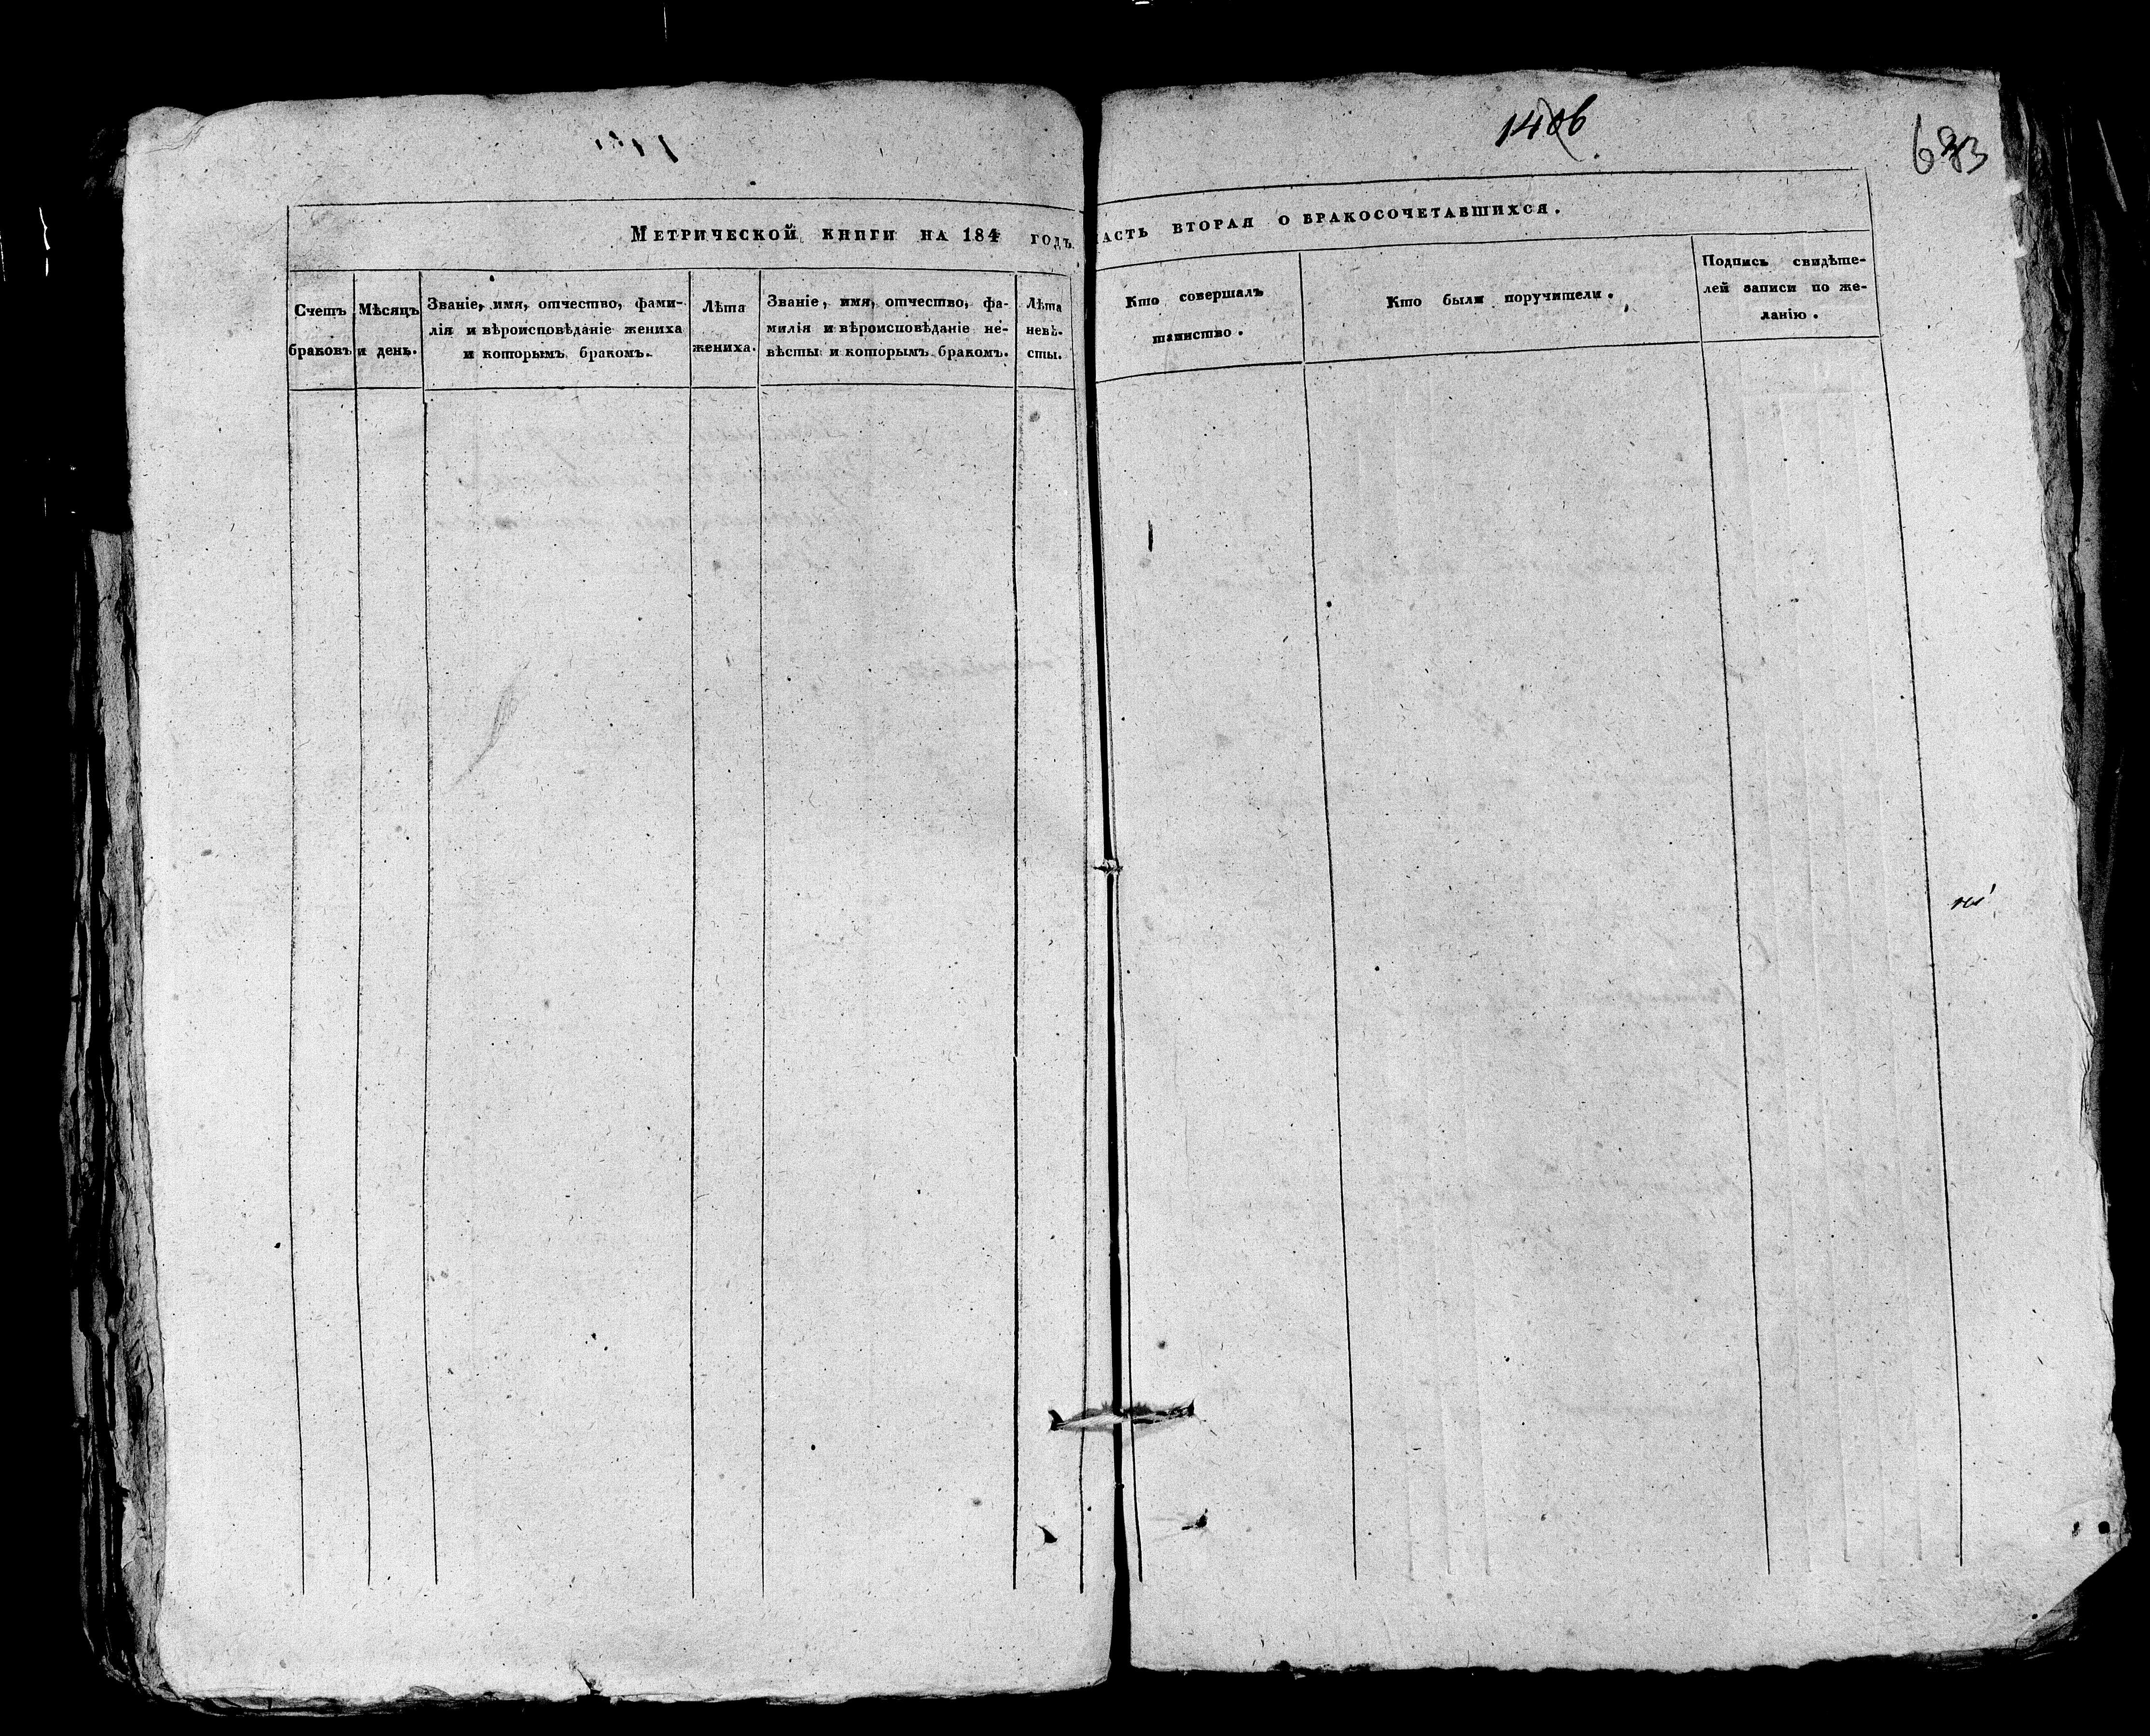 Метрической книги на 184 годъ
часть вторая о бракосочетавшихся.
Счетъ
браковъ
Мѣсяцъ
и день.
Званіе, имя, отчество, фами-
лія и вѣроисповѣданіе жениха
и которымъ бракомъ.
Лѣта
жениха.
Званіе, имя, отчество, фа-
милія и вѣроисповѣданіе не-
вѣсты и которымъ бракомъ.
Лѣта
невѣ-
сты.
Кто совершалъ
таинство.
Кто были поручители.
Подпись свидѣте-
лей записи по же-
ланію.